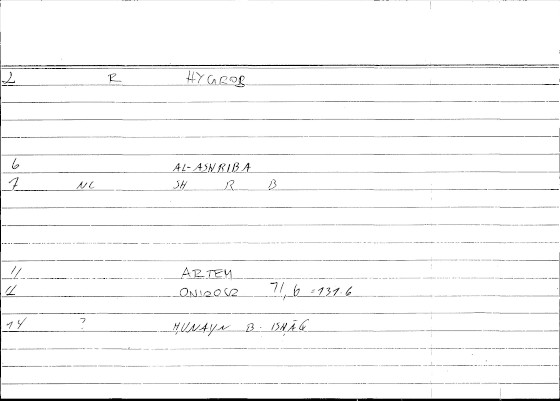 2 R HYGROB
6 AL-ASHRIBA
7 NL SH R B
11 ARTEM
12 ONIROCR 71, 6 = 131.6
14 ? ḤUNAYN B. ISḤĀQ